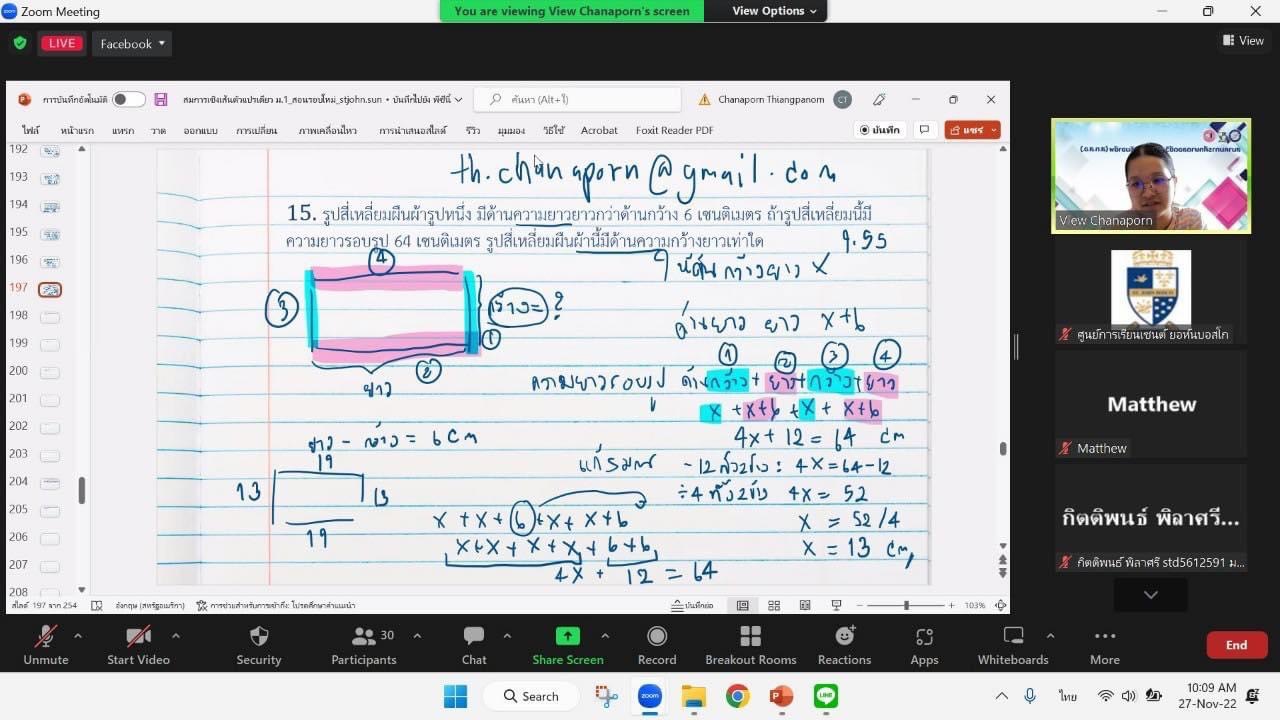 Zoom Meeting
You are viewing View Chanaporn's screen
View Options
LIVE
Facebook
View
การบันทึกอัตโนมัติ
สมการเชิงเส้นตัวแปรเดียว ม.1_สอนรอบใหม่_stjohn.sun • บันทึกไปยัง พีซีนี้
ค้นหา (Alt+ใ)
Chanaporn Thiangpanom
CT
ไฟล์ หน้าแรก แทรก วาด ออกแบบ การเปลี่ยน ภาพเคลื่อนไหว การนำเสนอสไลด์ รีวิว มุมมอง วิธีใช้ Acrobat Foxit Reader PDF
บันทึก
แชร์
192
193
194
195
196
197
198
199
200
201
202
203
204
205
206
207
208
th.chanaporn@gmail.com
15. รูปสี่เหลี่ยมผืนผ้ารูปหนึ่ง มีด้านความยาวยาวกว่าด้านกว้าง 6 เซนติเมตร ถ้ารูปสี่เหลี่ยมนี้มี
ความยาวรอบรูป 64 เซนติเมตร รูปสี่เหลี่ยมผืนผ้านี้มีด้านความกว้างยาวเท่าใด
9.55
ให้ด้านกว้างยาว x
4
3
กว้าง = ?
1
2
ยาว
ด้านยาว ยาว x+6
1 2 3 4
ความยาวรอบรูป ด้านกว้าง + ยาว + กว้าง + ยาว
x + x+6 + x + x+6
4x + 12 = 64 cm
ยาว - กว้าง = 6 cm
19
13
13
19
แก้สมการ -12 ทั้ง2ข้าง : 4x = 64-12
÷4 ทั้ง2ข้าง 4x = 52
x + x + 6 + x + x + 6
x = 52/4
x+x + x + x + 6+6
x = 13 cm,
4x + 12 = 64
สไลด์ 197 จาก 254
อังกฤษ (สหรัฐอเมริกา)
การช่วยสำหรับการเข้าถึง: โปรดศึกษาคำแนะนำ
บันทึกย่อ
103%
View Chanaporn
ศูนย์การเรียนเซนต์ ยอห์นบอสโก
Matthew
Matthew
กิตติพนธ์ พิลาศรี...
กิตติพนธ์ พิลาศรี std5612591 ม...
Unmute
Start Video
Security
30
Participants
Chat
Share Screen
Record
Breakout Rooms
Reactions
Apps
Whiteboards
More
End
Search
zoom
LINE
ไทย
10:09 AM
27-Nov-22